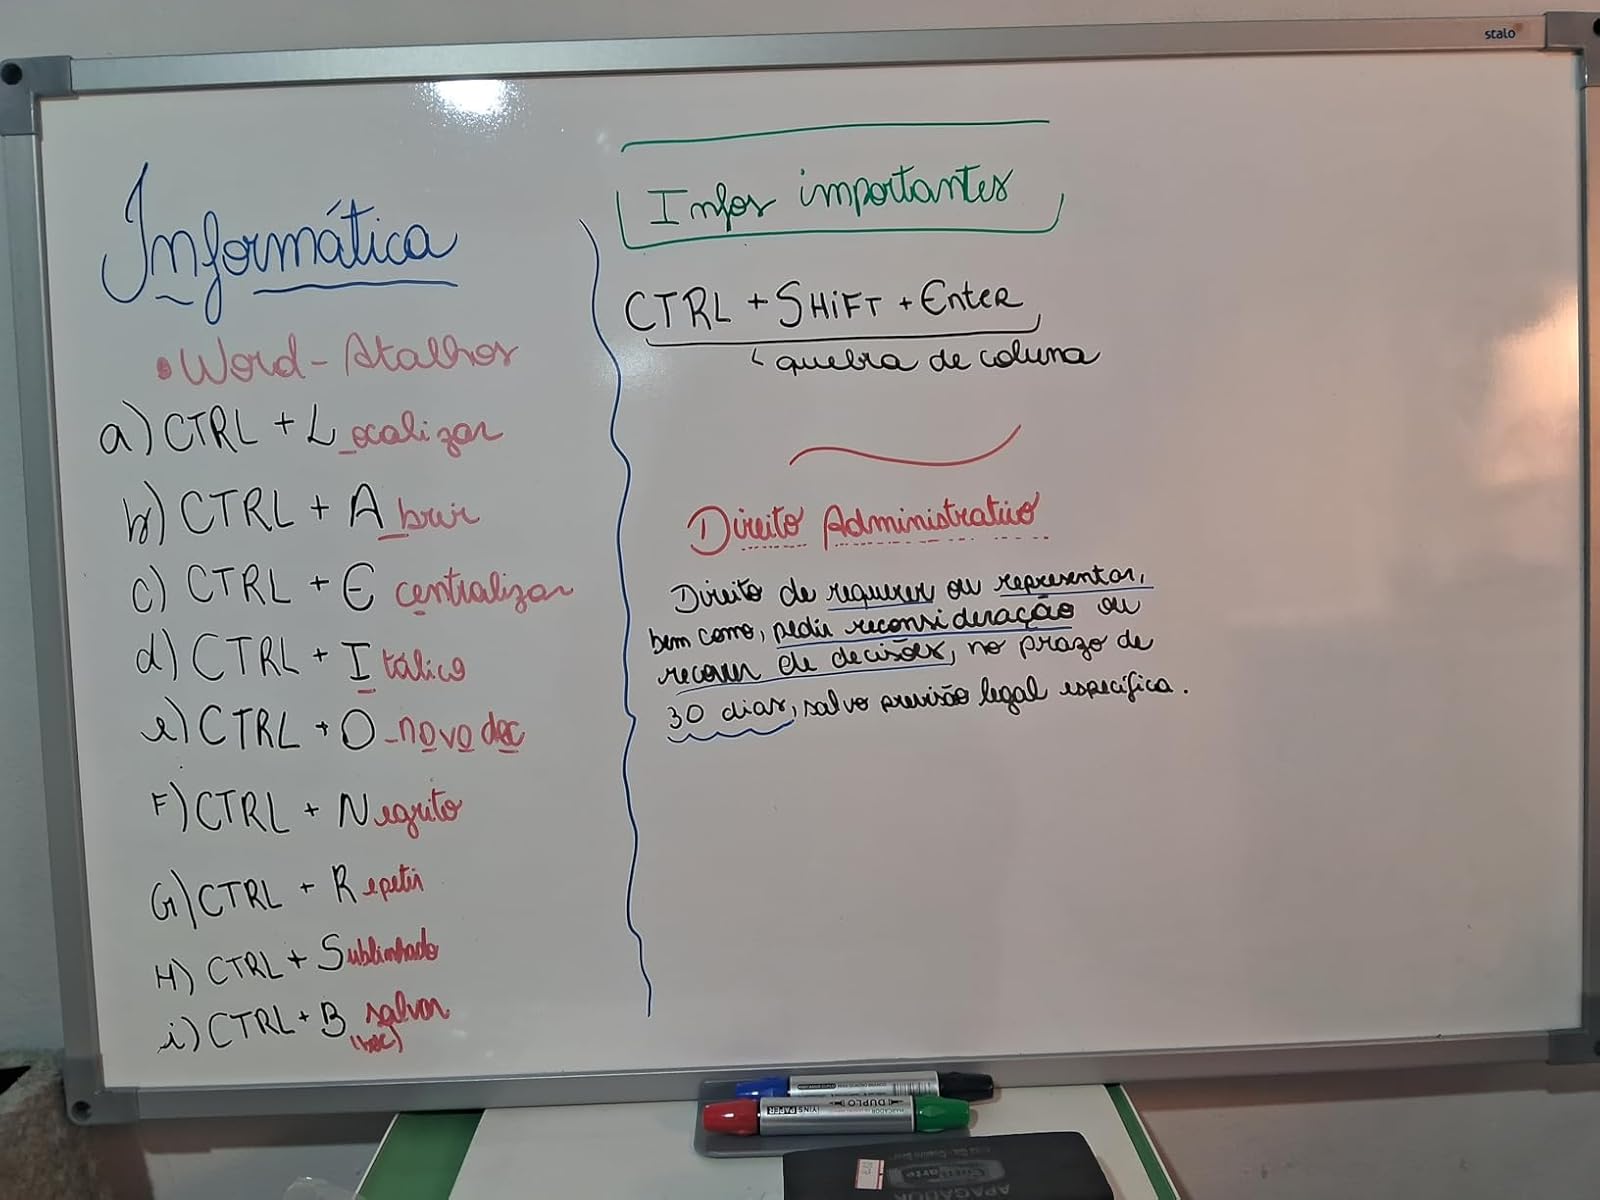 stalo
Informática
• Word - Atalhos
a) CTRL + Localizar
b) CTRL + Abrir
c) CTRL + E centralizar
d) CTRL + Itálico
e) CTRL + O - novo doc
F) CTRL + Negrito
G) CTRL + Repetir
H) CTRL + Sublinhado
i) CTRL + B salvar
Infos importantes
CTRL + SHiFT + EnteR
quebra de coluna
Direito Administrativo
Direito de requerer ou representar,
bem como, pedir reconsideração ou
recorrer de decisões, no prazo de
30 dias, salvo previsão legal específica.
DUPLO
APAGADOR